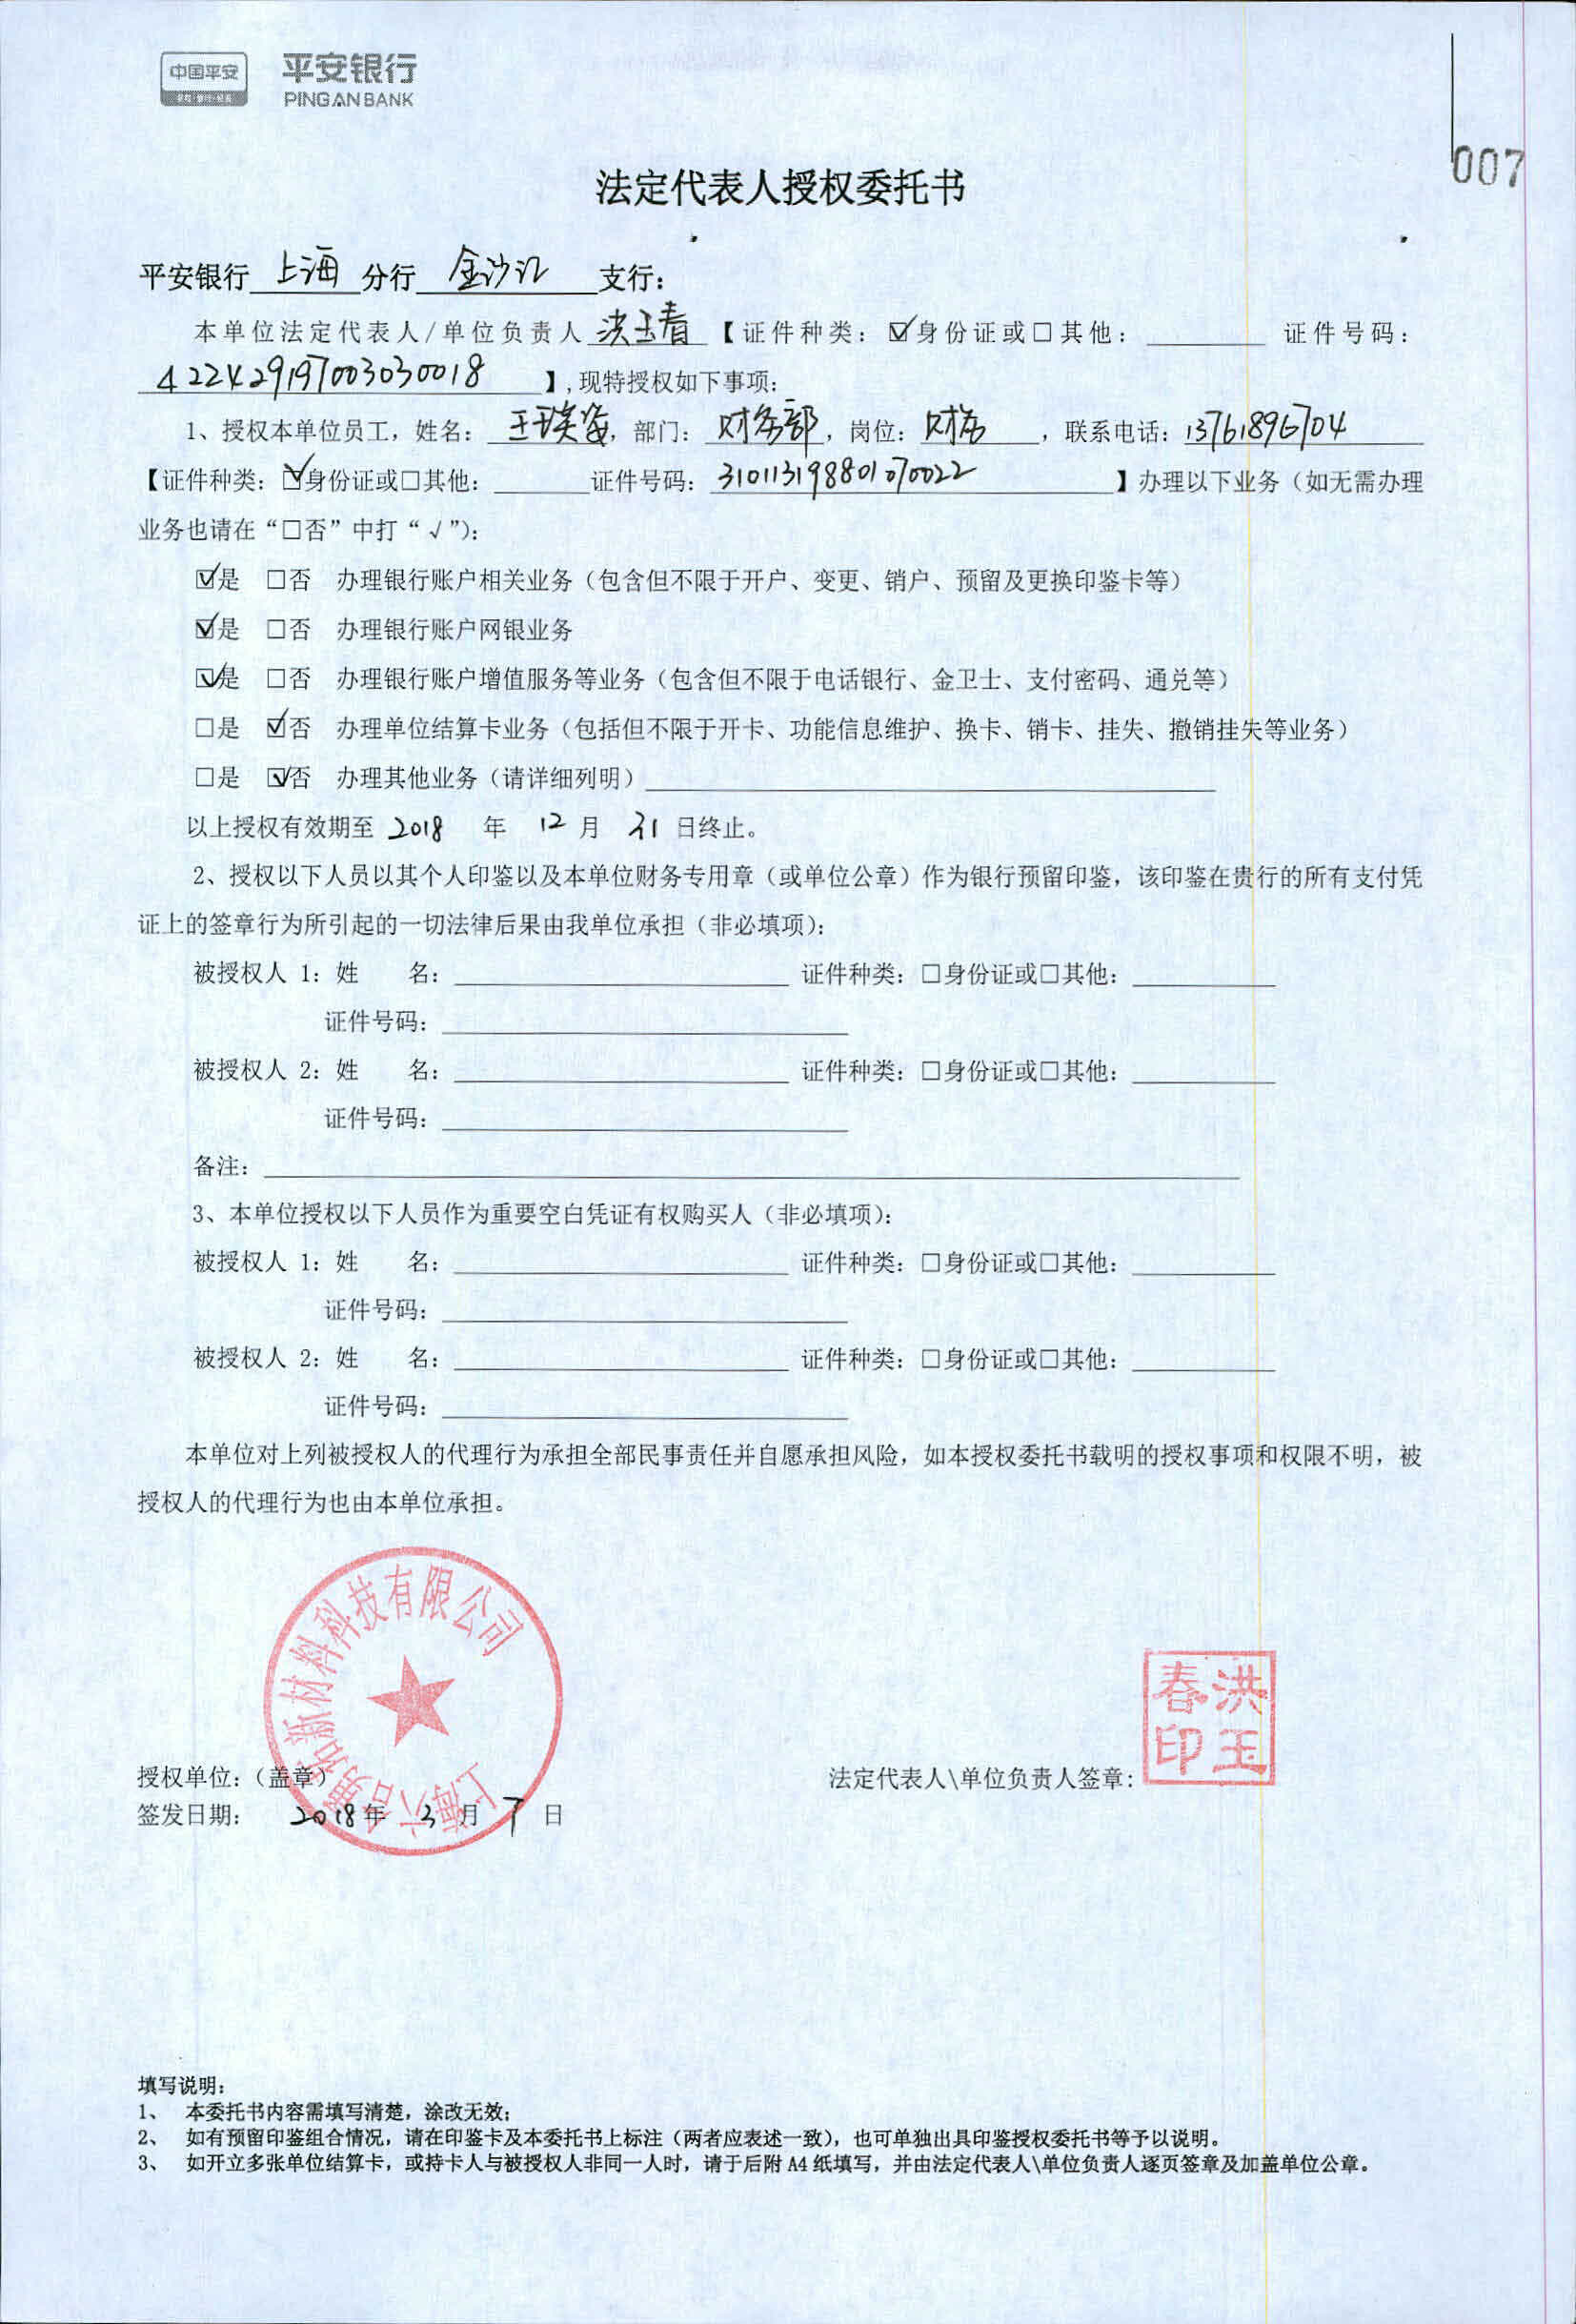 中国平安
平安银行
PING AN BANK
007
法定代表人授权委托书
平安银行 上海 分行 金沙江 支行：
本单位法定代表人/单位负责人 洪玉春 【证件种类：☑身份证或□其他：________ 证件号码：
422429197003030018 】,现特授权如下事项：
1、授权本单位员工，姓名：王瑛，部门：财务部，岗位：财务，联系电话：13761896704
【证件种类：☑身份证或□其他：________证件号码：310113198801070022 】办理以下业务（如无需办理
业务也请在“□否”中打“√”）：
☑是 □否 办理银行账户相关业务（包含但不限于开户、变更、销户、预留及更换印鉴卡等）
☑是 □否 办理银行账户网银业务
☑是 □否 办理银行账户增值服务等业务（包含但不限于电话银行、金卫士、支付密码、通兑等）
□是 ☑否 办理单位结算卡业务（包括但不限于开卡、功能信息维护、换卡、销卡、挂失、撤销挂失等业务）
□是 ☑否 办理其他业务（请详细列明）________
以上授权有效期至 2018 年 12 月 31 日终止。
2、授权以下人员以其个人印鉴以及本单位财务专用章（或单位公章）作为银行预留印鉴，该印鉴在贵行的所有支付凭
证上的签章行为所引起的一切法律后果由我单位承担（非必填项）：
被授权人 1：姓 名：________ 证件种类：□身份证或□其他：________
证件号码：________
被授权人 2：姓 名：________ 证件种类：□身份证或□其他：________
证件号码：________
备注：________
3、本单位授权以下人员作为重要空白凭证有权购买人（非必填项）：
被授权人 1：姓 名：________ 证件种类：□身份证或□其他：________
证件号码：________
被授权人 2：姓 名：________ 证件种类：□身份证或□其他：________
证件号码：________
本单位对上列被授权人的代理行为承担全部民事责任并自愿承担风险，如本授权委托书载明的授权事项和权限不明，被
授权人的代理行为也由本单位承担。
上海六合勇拓新材料科技有限公司
洪玉春印
授权单位：（盖章）
法定代表人\单位负责人签章：
签发日期： 2018年 3 月 7 日
填写说明：
1、 本委托书内容需填写清楚，涂改无效；
2、 如有预留印鉴组合情况，请在印鉴卡及本委托书上标注（两者应表述一致），也可单独出具印鉴授权委托书等予以说明。
3、 如开立多张单位结算卡，或持卡人与被授权人非同一人时，请于后附 A4 纸填写，并由法定代表人\单位负责人逐页签章及加盖单位公章。